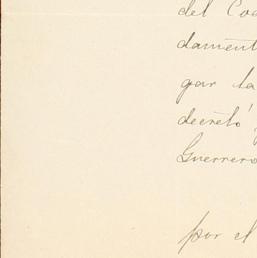 del Co
dament
gar la
decretó
Guerrero
por el